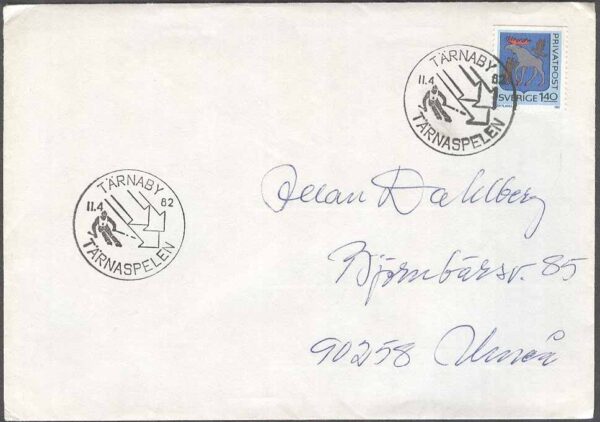 TÄRNABY
11.4 82
TÄRNASPELEN
PRIVATPOST
SVERIGE 140
TÄRNABY
11.4 82
TÄRNASPELEN
Allan Dahlberg
Björnbärsv. 85
90258 Umeå